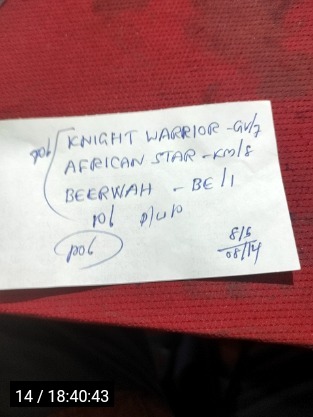 pob KNIGHT WARRIOR - GV/7
AFRICAN STAR - KM/8
BEERWAH - BE/1
pob p/u/o
pob
8/6
08/14
14 / 18:40:43